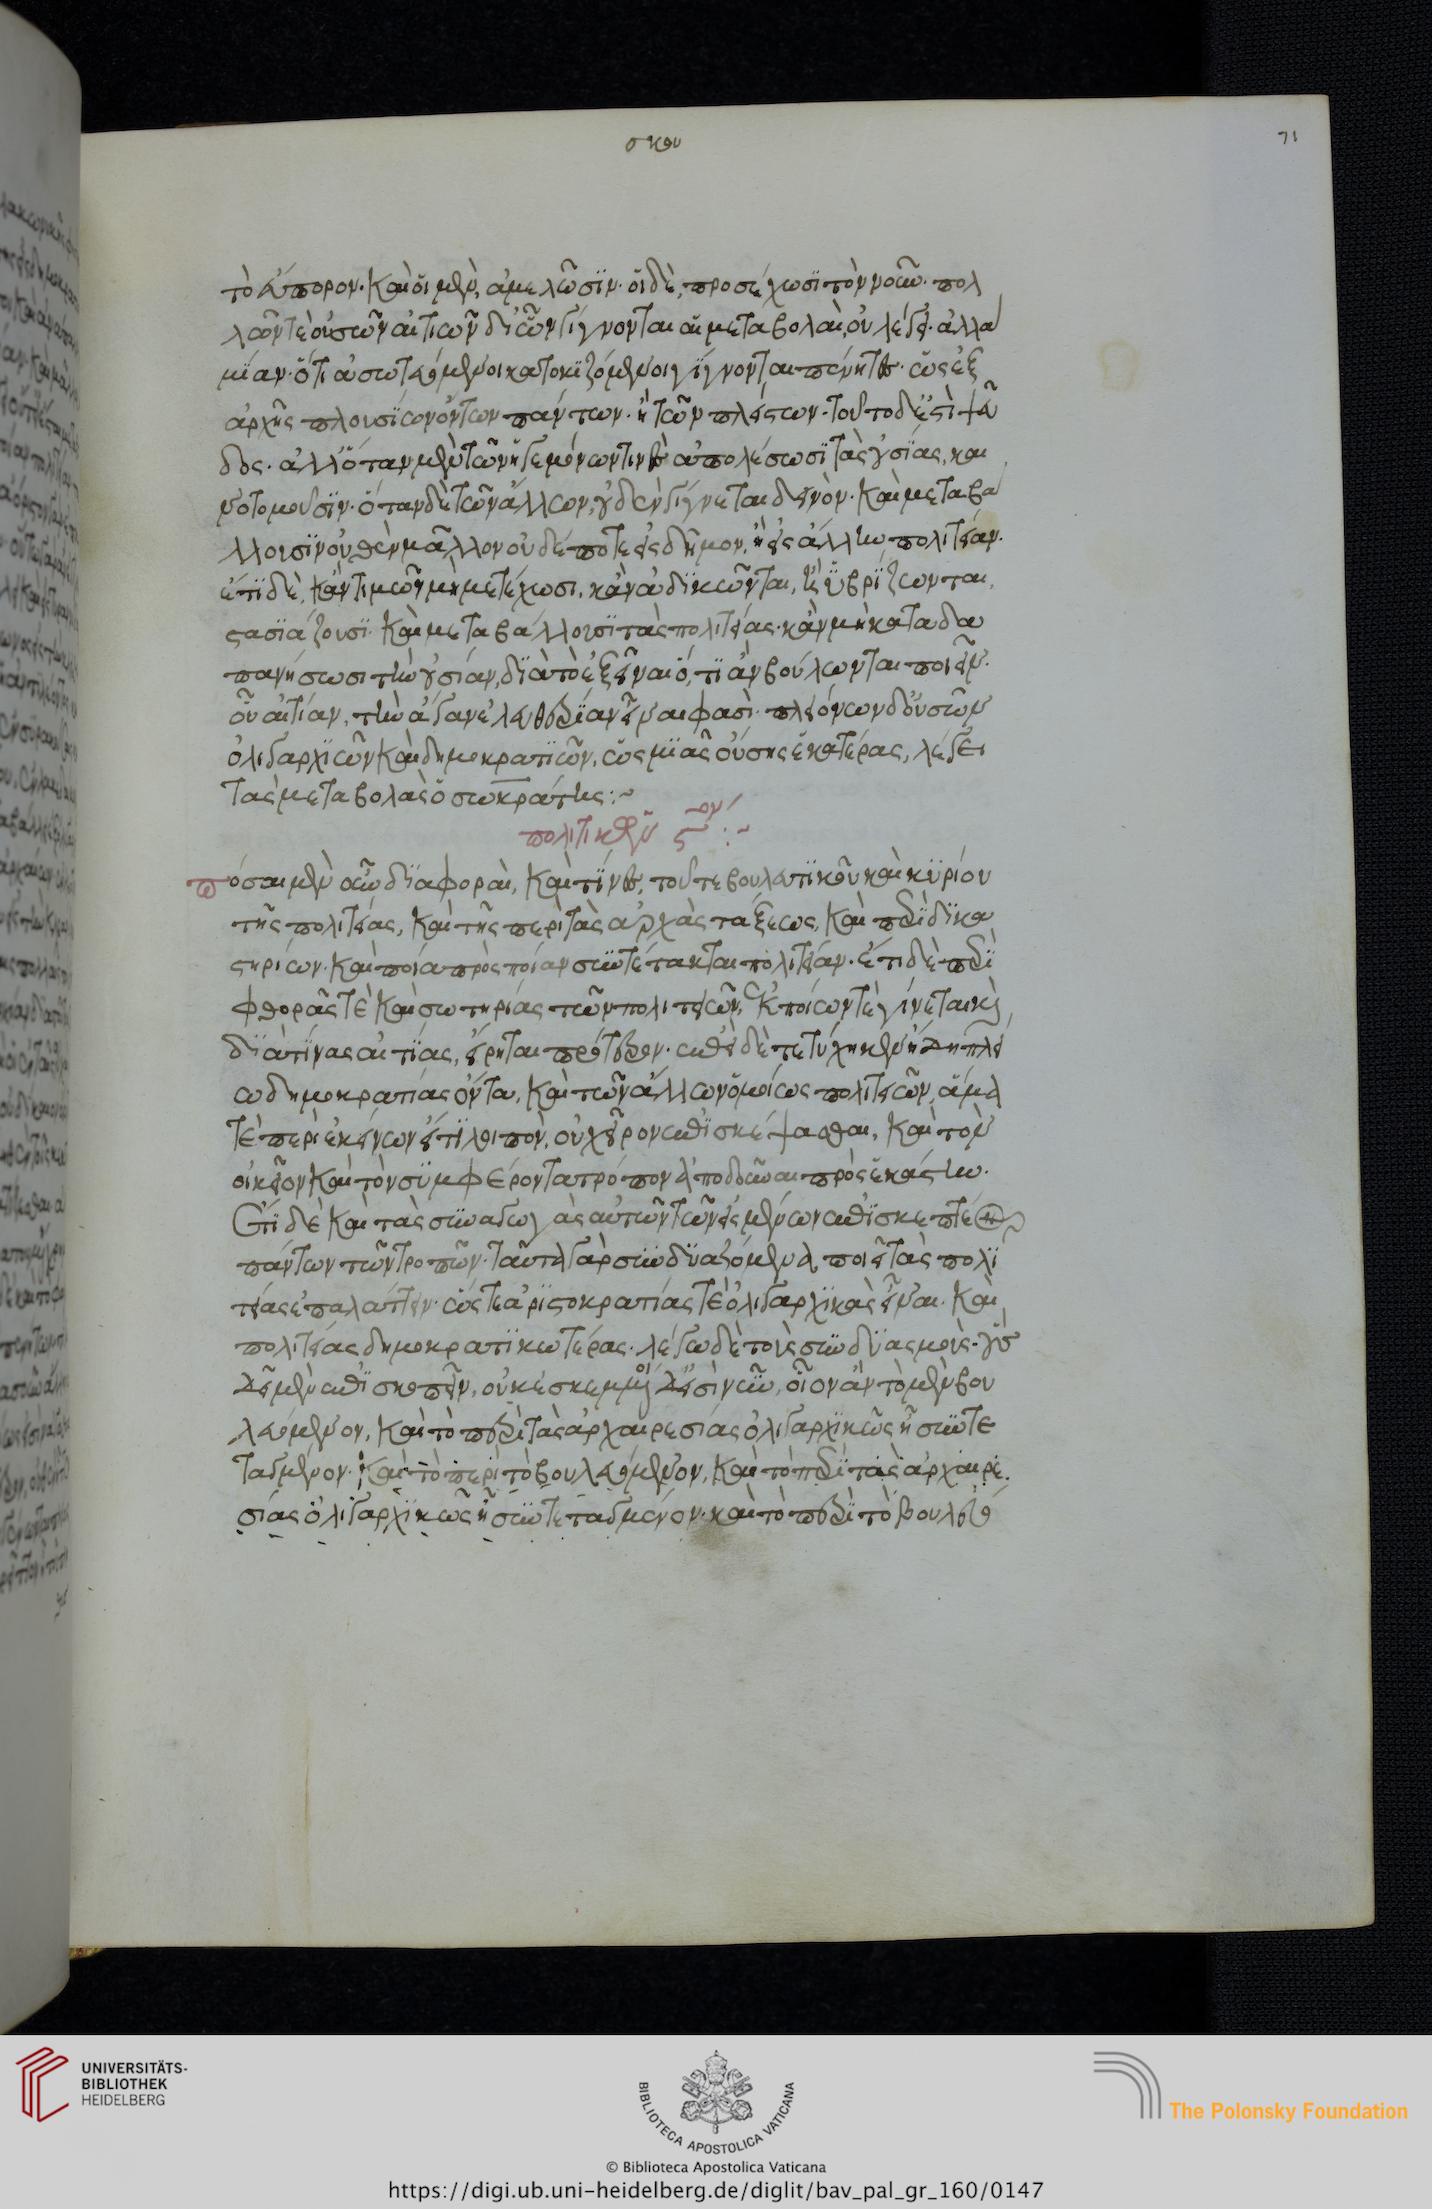 71
τὸ εὔπορον. καὶ οἱ μὲν, ἀμελῶσϊν. οἱ δὲ, προσέχωσϊ τὸν νοῦν. πολ
λῶν τὲ οὐσῶν αἰτιῶν δι' ὧν γίγνονται αἱ μεταβολαὶ, οὐ λέγει. ἀλλὰ
μίαν. ὅτι ἀσωτευόμενοι κατοκϊζόμενοι γίγνονται πένητες. ὡς ἐξ
ἀρχῆς πλουσίων ὄντων πάντων. ἢ τῶν πλείστων. τοῦτο δ' ἐστὶ ψεῦ
δος. ἀλλ' ὅταν μὲν τῶν ἡγεμόνων τινὲς ἀπολέσωσϊ τὰς οὐσίας, και
νοτομοῦσϊν. ὅταν δὲ τῶν ἄλλων, οὐδὲν γίγνεται δεινὸν. καὶ μεταβα
λλουσϊν οὐθὲν μᾶλλον οὐδέποτε εἰς δῆμον, ἢ εἰς ἄλλην πολιτείαν.
ἔτϊ δὲ, κἂν τιμῶν μὴ μετέχωσι, κἂν ἀδϊκῶνται, ἢ ὑβρίζωνται,
στασϊάζουσϊ. καὶ μεταβάλλουσϊ τὰς πολιτείας. κἂν μὴ καταδα
πανήσωσι τὴν οὐσίαν, δϊὰ τὸ ἐξεῖναι ὅ, τϊ ἂν βούλωνται ποιεῖν.
οὗ αἰτίαν, τὴν ἄγαν ἐλευθερίαν εἶναι φασὶ. πλειόνων δ' οὐσῶν
ὀλιγαρχϊῶν καὶ δημοκρατϊῶν, ὡς μϊᾶς οὔσης ἑκατέρας, λέγει
τὰς μεταβολὰς ὁ σωκράτης:~
πολιτικῶν ϛ~ον:~
πόσαι μὲν οὖν δϊαφοραὶ, καὶ τίνες, τοῦ τε βουλευτϊκοῦ καὶ κϋρίου
τῆς πολιτείας, καὶ τῆς περὶ τὰς ἀρχὰς τάξεως, καὶ περὶ δϊκα
στηρίων. καὶ ποία πρὸς ποίαν συντέτακται πολιτείαν. ἔτι δὲ περὶ
φθορᾶς τὲ καὶ σωτηρίας τῶν πολιτειῶν, ἐκ ποίων τὲ γίνεται καὶ
δϊὰ τίνας αἰτίας, εἴρηται πρότερον. ἐπεὶ δὲ τετύχηκεν εἴδη πλεί
ω δημοκρατίας ὄντα, καὶ τῶν ἄλλων ὁμοίως πολιτειῶν, ἅμα
τὲ περὶ ἐκείνων εἴ τϊ λοιπὸν, οὐ χεῖρον ἐπϊσκέψασθαι, καὶ τὸν
οἰκεῖον καὶ τὸν σϋμφέροντα τρόπον ἀποδοῦναι πρὸς ἑκάστην.
Ἔτϊ δὲ καὶ τὰς συναγωγὰς αὐτῶν τῶν εἰρημένων ἐπϊσκεπτέον
πάντων τῶν τροπῶν. ταῦτα γὰρ συνδϋαζόμενα, ποιεῖ τὰς πολϊ
τείας ἐπαλάττειν. ὥστε ἀρϊστοκρατίας τὲ ὀλιγαρχϊκὰς εἶναι. καὶ
πολιτείας δημοκρατϊκωτέρας. λέγω δὲ τοὺς συνδϋασμοὺς. οὓς
δεῖ μὲν ἐπϊσκοπεῖν, οὐκ ἐσκεμμένοι δ' εἰσὶ νῦν, οἷον ἂν τὸ μὲν βου
λευόμενον, καὶ τὸ περὶ τὰς ἀρχαιρεσίας ὀλιγαρχϊκῶς ᾖ συντε
ταγμένον. καὶ τὸ περὶ τὸ βουλευόμενον, καὶ τὸ περὶ τὰς ἀρχαιρε
σίας ὀλιγαρχϊκῶς ᾖ συντεταγμένον. καὶ τὸ περὶ τὸ βουλευό
UNIVERSITÄTS-
BIBLIOTHEK
HEIDELBERG
BIBLIOTECA APOSTOLICA VATICANA
The Polonsky Foundation
© Biblioteca Apostolica Vaticana
https://digi.ub.uni-heidelberg.de/diglit/bav_pal_gr_160/0147